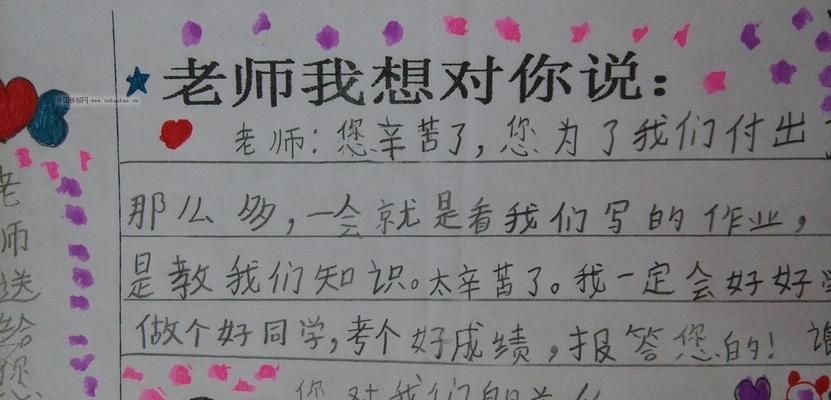 老师我想对你说：
老师：您辛苦了，您为了我们付出
那么多，一会就是看我们写的作业，
是教我们知识。太辛苦了。我一定会好好学
做个好同学，考个好成绩，报答您的！
您对我们的关
老师送给您
中国板报网 www.cnbanbao.cn